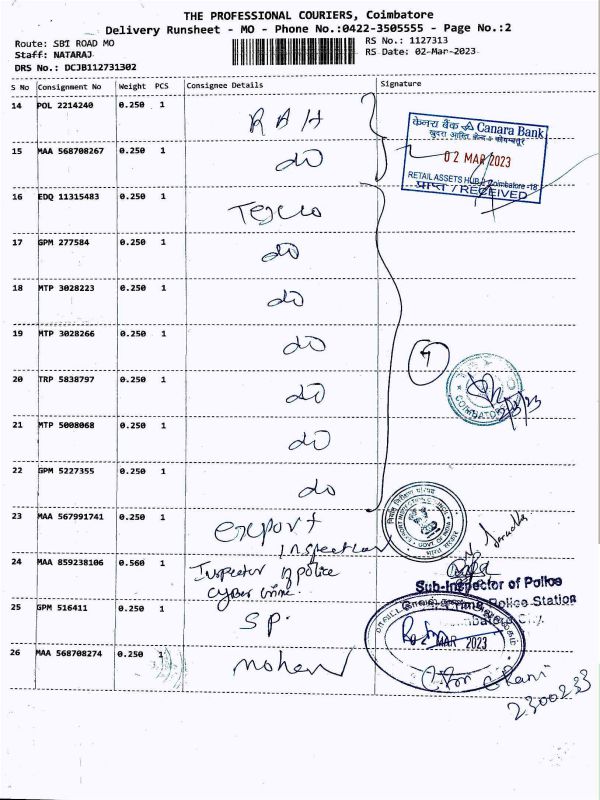 THE PROFESSIONAL COURIERS, Coimbatore
Delivery Runsheet - MO - Phone No.:0422-3505555 - Page No.:2
Route: SBI ROAD MO
RS No.: 1127313
Staff: NATARAJ
RS Date: 02-Mar-2023
DRS No.: DCJB112731302
S No Consignment No Weight PCS Consignee Details Signature
14 POL 2214240 0.250 1 RAH
केनरा बैंक Canara Bank
02 MAR 2023
RETAIL ASSETS HUB Coimbatore -18
प्राप्त / RECEIVED
15 MAA 568708267 0.250 1 do
16 EDQ 11315483 0.250 1
17 GPM 277584 0.250 1 do
18 MTP 3028223 0.250 1 do
19 MTP 3028266 0.250 1 do
7
20 TRP 5838797 0.250 1 do
COIMBATORE
2/3/23
21 MTP 5008068 0.250 1 do
22 GPM 5227355 0.250 1 do
23 MAA 567991741 0.250 1 export
inspection
24 MAA 859238106 0.560 1 Inspector of police
cyber crime
Sub-Inspector of Police
Crime Police Station
Coimbatore City.
25 GPM 516411 0.250 1 S.P.
MAR 2023
26 MAA 568708274 0.250 1 mohan
2300233